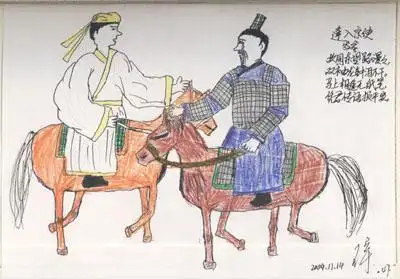 逢入京使
岑参
故园东望路漫漫,
双袖龙钟泪不干。
马上相逢无纸笔
凭君传语报平安
2009.11.14